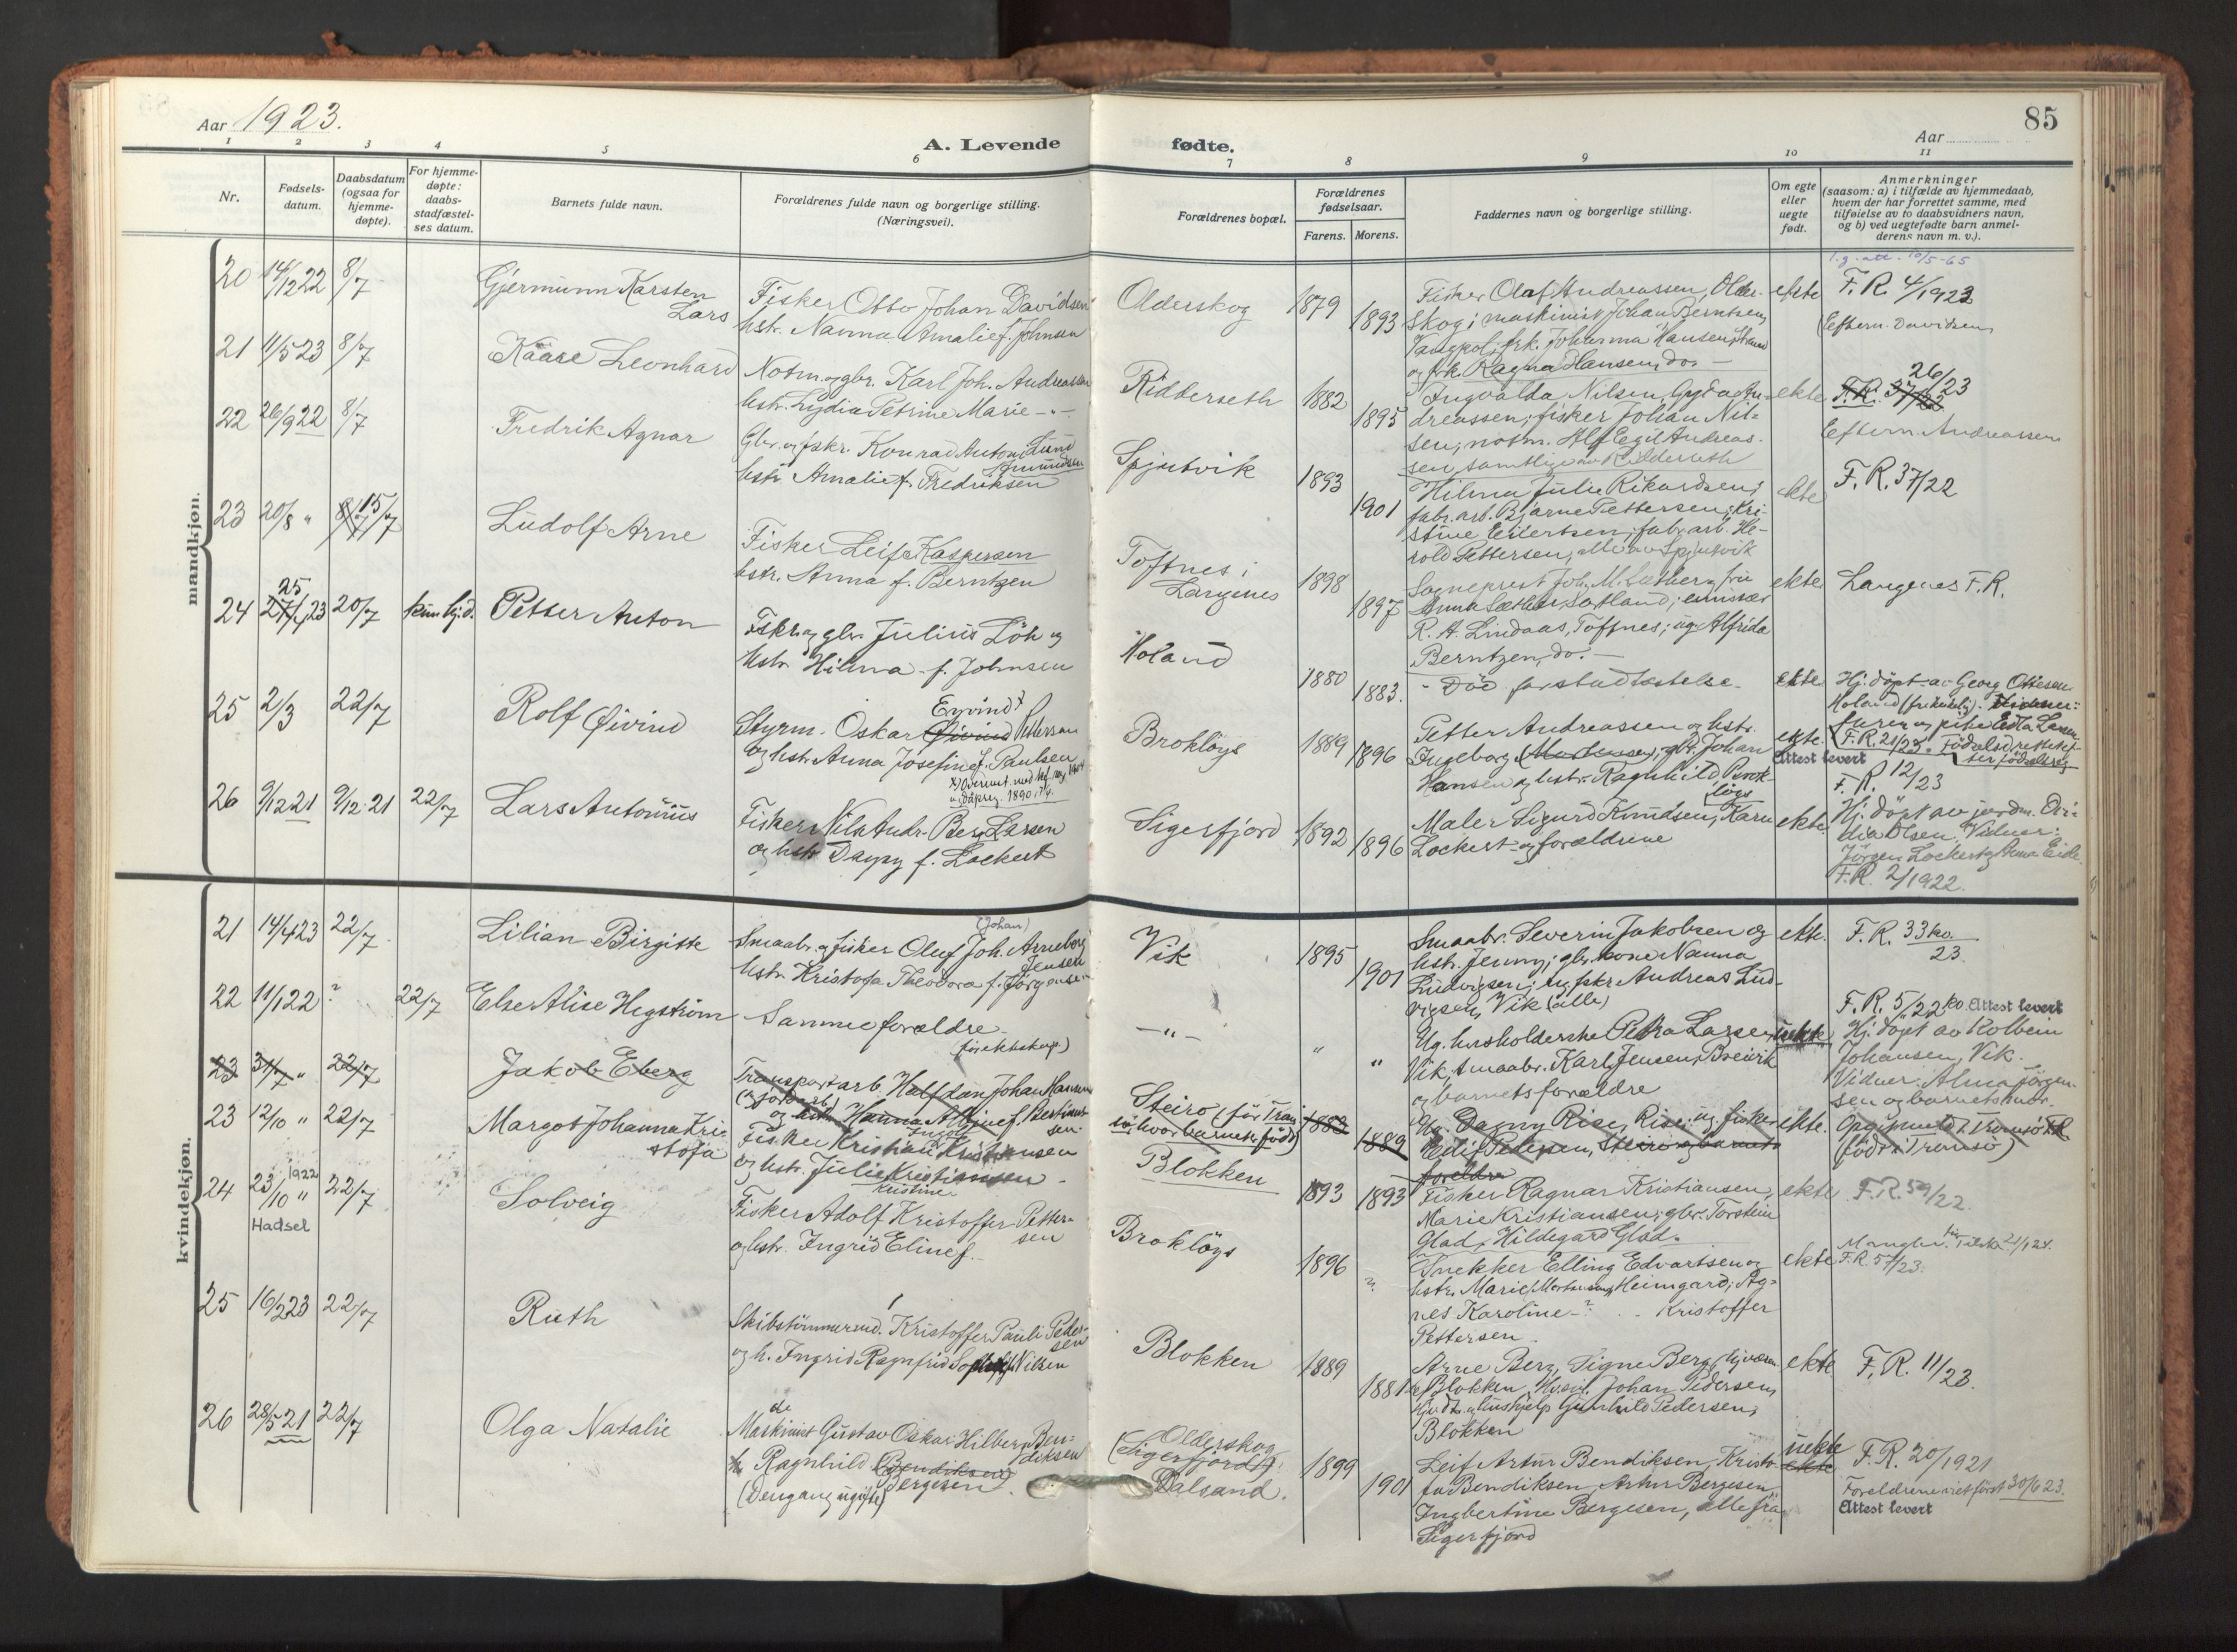 Aar 1923.
A. Levende
fødte.
Aar
85
1
2
3
4
5
6
7
8
9
10
11
Nr.
Fødsels-
datum.
Daabsdatum
(ogsaa for
hjemme-
døpte).
For hjemme-
døpte:
daabs-
stadfæstel-
ses datum.
Barnets fulde navn.
Forældrenes fulde navn og borgerlige stilling.
(Næringsvei).
Forældrenes bopæl.
Forældrenes
fødselsaar.
Farens. Morens.
Faddernes navn og borgerlige stilling.
Om egte
eller
uegte
født.
Anmerkninger
(saasom: a) i tilfælde av hjemmedaab,
hvem der har forrettet samme, med
tilføielse av to daabsvidners navn,
og b) ved uegtefødte barn anmel-
derens navn m. v.).
mandkjøn.
20 14/12 22 8/7
Gjermunn Karsten
Lars
Fisker Otto Johan Davidsen
hstr. Nanna Amalie f. Johnsen
Olderskog 1879 1893
Fisker Olaf Andreassen, Older-
skog; maskinist Johan Berntsen,
Vangpol; frk. Johanna Hansen,
og frk. Ragna Hansen, do. —
ekte
10/5-65
F. R. 4/1923
(Eftern. Davidsen)
21 11/5 23 8/7
Kåare Leonhard
Notm. og gbr. Karl Joh. Andreassen
hstr. Lydia Petrine Marie — " —
Ridderseth 1882 1895
Ingvalda Nilsen, Gyda An-
dreassen; fisker Johan Nil-
sen; notm. Alf Egil Andreas-
sen, samtlige av Ridderseth
ekte
F.R. 37/22 26/23
Eftern. Andreassen
22 26/9 22 8/7
Fredrik Agnar
Gbr. og fskr. Konrad Anton Lund
Amundsen
hstr Amalie f. Fredriksen
Spjutvik 1893 1901
Hilma Julie Rikardsen;
fabr. arb. Bjarne Pettersen; Kri-
stine Eilertsen; fabr. arb. He-
rold Pettersen, alle av Spjutvik
ekte
F. R. 37/22
23 20/8 " 8/7 15/7
Ludolf Arne
Fisker Leif Kaspersen
hstr. Anna f. Berntzen
Toftnes i
Langenes
1898 1897
Sogneprest Joh. M. Sæther, fru
Anna Sæther, Sortland; emissær
R. A. Lindaas, Toftnes; ug. Alfrida
Berntzen, do. —
ekte
Langenes F. R.
24 27/1 23 25 20/7 kun hj.d.
Petter Anton
Fskr. og gbr. Julius Löh og
hstr. Hilma f. Johnsen
Holand 1880 1883.
- Död før stadfæstelse.
ekte
Hj. döpt av Georg Ottesen
Holand (frikirkelig).
F.R. 21/23.
25 2/3 22/7
Rolf Øivind
Eyvind x
Styrm. Oskar Øivind Pettersen
og hstr. Anna Josefine f. Paulsen
Brokløys 1889 1896
Petter Andreassen og hstr.
Ingeborg (Mortensen); gbr. Johan
Hansen og hstr. Ragnhild Brok-
løys
ekte.
Attest levert
F. R. 12/23
26 9/12 21 9/12 21 22/7
Lars Antonius
Fisker Nils Andr. Berg Larsen
og hstr Dagny f. Lockert
Sigerfjord 1892 1896
Maler Sigurd Knudsen, Karen
Lockert og forældrene
ekte.
Hj. döpt av jordm. Ovi-
dia Olsen. Vidner:
Jørgen Lockert og Anna Eide.
F.R. 2/1922.
kvindekjøn.
21 14/4 23 22/7
Lilian Birgitte
(Johan)
Smaabr. og fisker Oluf Joh. Arneberg
Jensen
hstr. Kristofa Theodora f. Jörgensen
Vik 1895 1901
Smaabr. Severin Jakobsen og
hstr. Jenny; gbr. kone Nanna
Ludvigsen; ug. fskr Andreas Lud-
vigsen, Vik (alle)
ekte.
F. R. 33 ko.
23.
22 11/1 22 ? 22/7
Else Alise Hegström
Samme forældre
(før ekteskap.)
— " — " "
Ug. husholderske Petra Larsen,
Vik, smaabr. Karl Jensen, Breivik
og barnets forældre
uekte
F. R. 5/22 ko. Attest levert
Hj. döpt av Kolbein
Johansen, Vik.
Vidner: Alma Jörgen-
sen og barnets mor.
23 31/7 " 22/7
Jakob Eberg
Transportarb. Halfdan Johan Hansen
(og jordarb.)
Steiro (før Trom-
sø, hvor barnet er født)
1882 1889
Ug. Dagny Rise, Rise; ug. fisker
Edif Pedersen, Steiro og barnets
foreldre
ekte.
Opgit meldt Tromsö FR.
(født i Tromsö)
23 12/10 " 22/7
Margot Johanna Kri-
stofa
Fisker Kristian Kristiansen
og hstr. Julie Kristiansen
Kristine
Blokken 1893 1893
Fisker Ragnar Kristiansen,
Marie Kristiansen; gbr. Torstein
Glad, Hildegard Glad.
ekte
F. R. 59/22.
24 23/10 1922 " 22/7
Hadsel
Solveig
Fisker Adolf Kristoffer Petter-
sen
og hstr. Ingrid Eline f.
Brokløys 1896 "
Snekker Elling Edvartsen og
hstr. Marie Mortensen, Heimgard; Ag-
nes Karoline - ? . . Kristoffer
Pettersen.
ekte
F.R. 57/23.
25 16/2 23 22/7
Ruth
Skibstömmermd. Kristoffer Pauli Peder-
sen
og h. Ingrid Ragnfrid Sofie f. Nilsen
Blokken 1889 1881
Arne Berg, Signe Berg,
Blokken, Johan Pedersen,
og hushjelp Gunhild Pedersen,
Blokken
ekte
F. R. 11/23.
26 28/5 21 22/7
Olga Natalie
de
Maskinist Gustav Oskar Hilberg Ben-
diksen
h. Ragnhild (Bendiksen)
Bergesen.
(Dengang ugifte)
Olderskog
(Sigerfjord)
Dalsand.
1899 1901
Leif Artur Bendiksen, Kristo-
fa Bendiksen, Artur Bergesen,
Ingbertine Bergesen, alle fra
Sigerfjord
uekte
ekte
F. R. 20/1921
Foreldrene viet först 30/6 23.
Attest levert